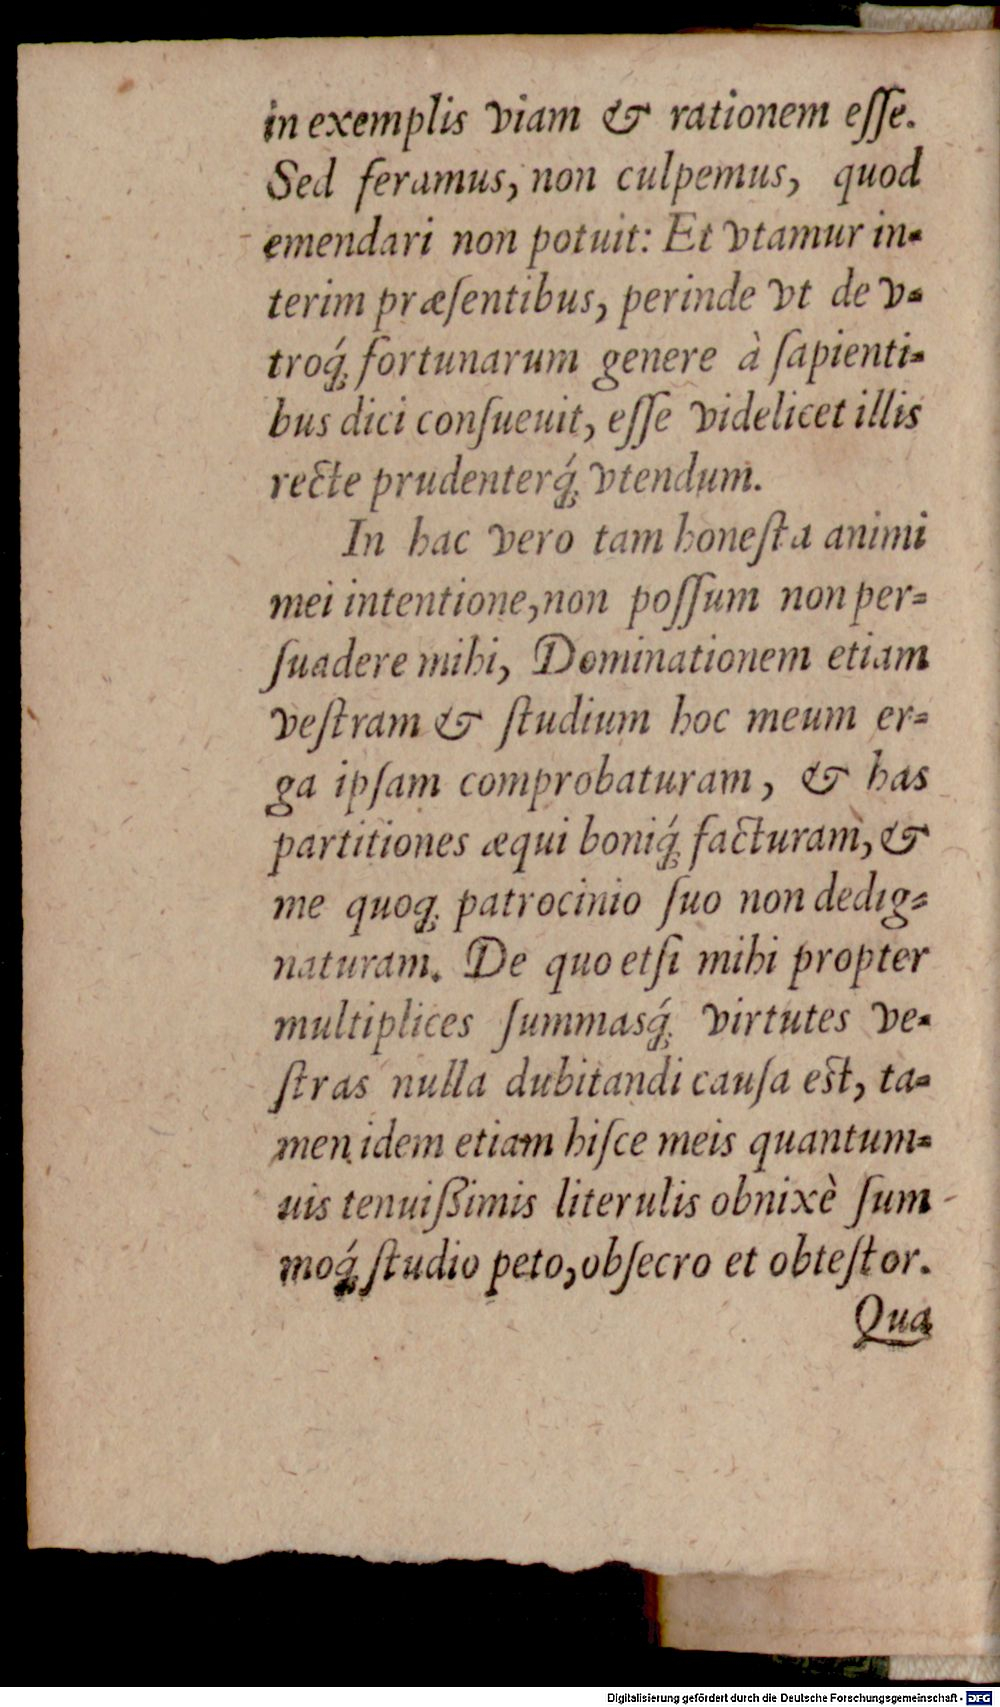 in exemplis viam & rationem eſſe.
Sed feramus, non culpemus, quod
emendari non potuit: Et vtamur in-
terim præſentibus, perinde vt de v-
troq́; fortunarum genere à ſapienti-
bus dici conſueuit, eſſe videlicet illis
recte prudenterq́; vtendum.
In hac vero tam honeſta animi
mei intentione, non poſſum non per-
ſuadere mihi, Dominationem etiam
veſtram & ſtudium hoc meum er-
ga ipſam comprobaturam, & has
partitiones æqui boniq́; facturam, &
me quoq; patrocinio ſuo non dedig-
naturam. De quo etſi mihi propter
multiplices ſummasq́; virtutes ve-
ſtras nulla dubitandi cauſa est, ta-
men idem etiam hiſce meis quantum-
uis tenuißimis literulis obnixè ſum
moq́; ſtudio peto, obſecro et obteſtor.
Qua
Digitalisierung gefördert durch die Deutsche Forschungsgemeinschaft - DFG